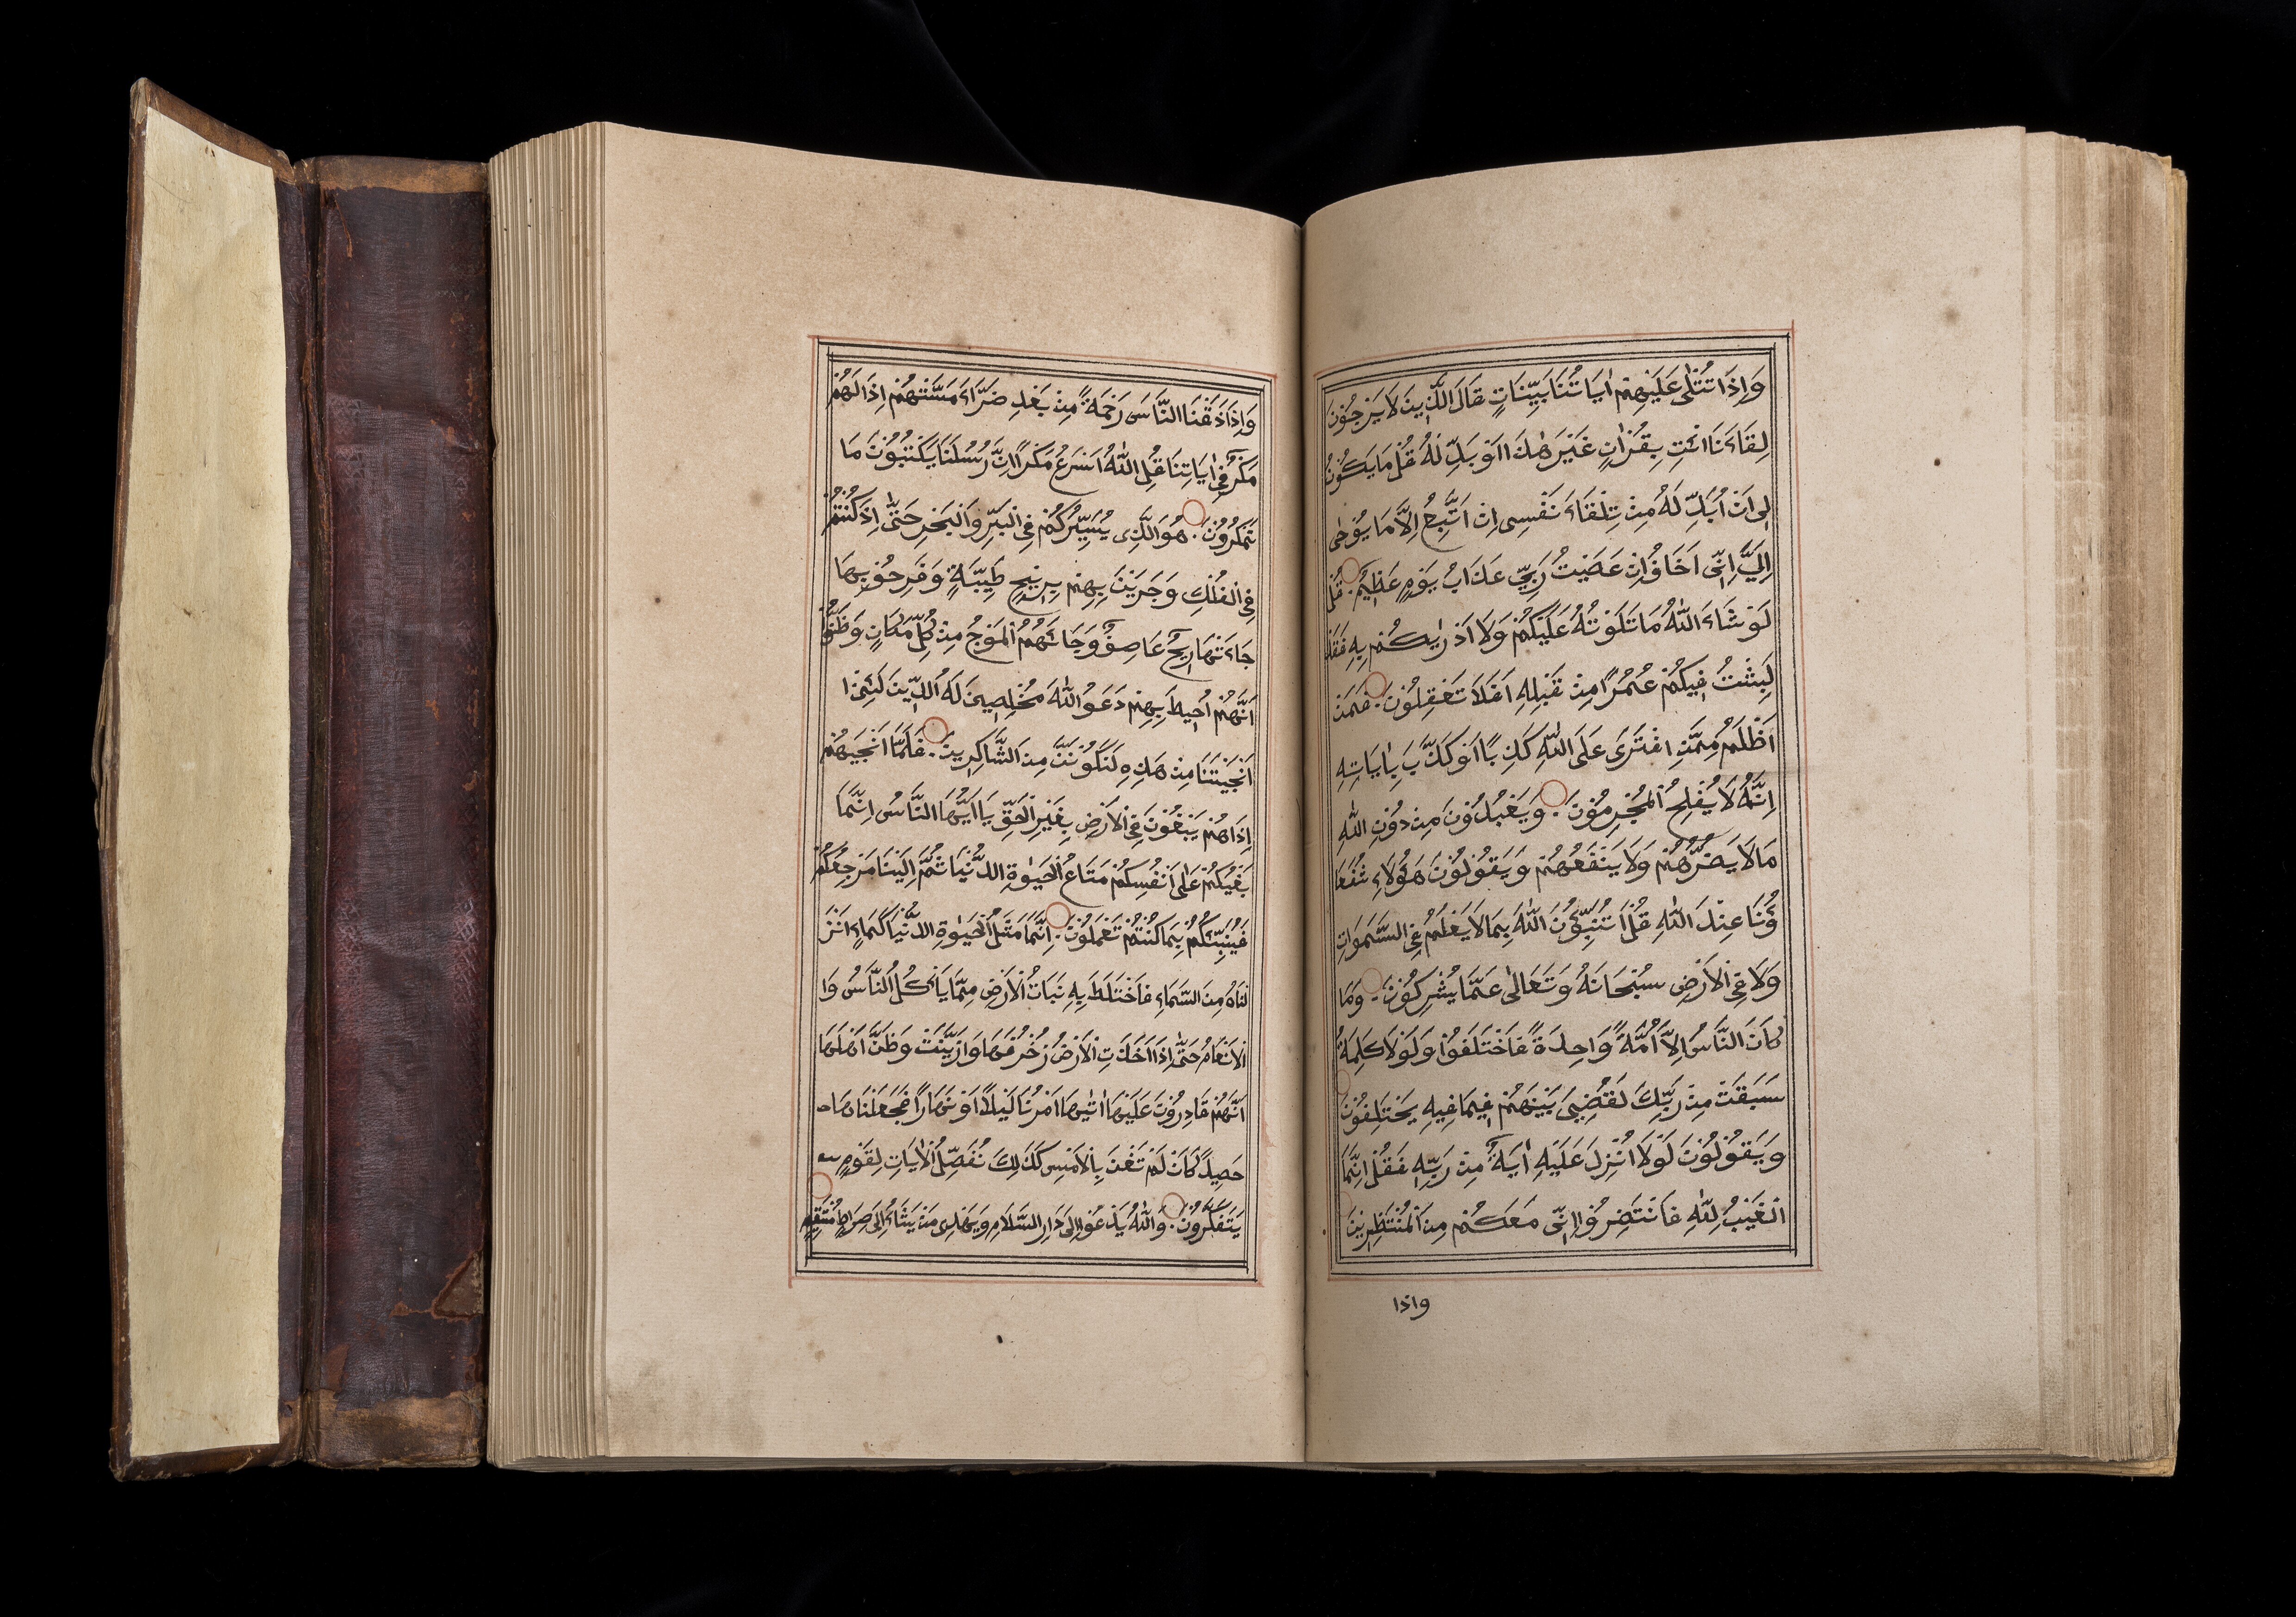 وَاِذَا تُتْلٰى عَلَيْهِمْ اٰيَاتُنَا بَيِّنَاتٍ قَالَ الَّذِينَ لَا يَرْجُوْنَ
لِقَاءَنَا ائْتِ بِقُرْاٰنٍ غَيْرِ هٰذَا اَوْ بَدِّلْهُ قُلْ مَا يَكُوْنُ
لِى اَنْ اُبَدِّلَهُ مِنْ تِلْقَاءِ نَفْسِى اِنْ اَتَّبِعُ اِلَّا مَا يُوْحٰى
اِلَيَّ اِنِّى اَخَافُ اِنْ عَصَيْتُ رَبِّي عَذَابَ يَوْمٍ عَظِيْمٍ قُلْ
لَوْ شَاءَ اللّٰهُ مَا تَلَوْتُهُ عَلَيْكُمْ وَلَا اَدْرٰيكُمْ بِهِ فَقَدْ
لَبِثْتُ فِيكُمْ عُمُرًا مِنْ قَبْلِهِ اَفَلَا تَعْقِلُوْنَ فَمَنْ
اَظْلَمُ مِمَّنِ افْتَرَى عَلَى اللّٰهِ كَذِبًا اَوْ كَذَّبَ بِاٰيَاتِهِ
اِنَّهُ لَا يُفْلِحُ الْمُجْرِمُوْنَ وَيَعْبُدُوْنَ مِنْ دُوْنِ اللّٰهِ
مَا لَا يَضُرُّهُمْ وَلَا يَنْفَعُهُمْ وَيَقُوْلُوْنَ هٰؤُلَاءِ شُفَعَا
ؤُنَا عِنْدَ اللّٰهِ قُلْ اَتُنَبِّئُوْنَ اللّٰهَ بِمَا لَا يَعْلَمُ فِي السَّمَوَاتِ
وَلَا فِي الْاَرْضِ سُبْحَانَهُ وَتَعَالٰى عَمَّا يُشْرِكُوْنَ وَمَا
كَانَ النَّاسُ اِلَّا اُمَّةً وَاحِدَةً فَاخْتَلَفُوْا وَلَوْلَا كَلِمَةٌ
سَبَقَتْ مِنْ رَبِّكَ لَقُضِىَ بَيْنَهُمْ فِيمَا فِيهِ يَخْتَلِفُوْنَ
وَيَقُوْلُوْنَ لَوْلَا اُنْزِلَ عَلَيْهِ اٰيَةٌ مِنْ رَبِّهِ فَقُلْ اِنَّمَا
الْغَيْبُ لِلّٰهِ فَانْتَضِرُوْا اِنِّى مَعَكُمْ مِنَ الْمُنْتَظِرِيْنَ
واذا
وَاِذَا اَذَقْنَا النَّاسَ رَحْمَةً مِنْ بَعْدِ ضَرَّاءَ مَسَّتْهُمْ اِذَا لَهُمْ
مَكْرٌ فِي اٰيَاتِنَا قُلِ اللّٰهُ اَسْرَعُ مَكْرًا اِنَّ رُسُلَنَا يَكْتُبُوْنَ مَا
تَمْكُرُوْنَ هُوَ الَّذِى يُسَيِّرُكُمْ فِي الْبَرِّ وَالْبَحْرِ حَتّٰى اِذَا كُنْتُمْ
فِي الْفُلْكِ وَجَرَيْنَ بِهِمْ بِرِيْحٍ طَيِّبَةٍ وَفَرِحُوْ بِهَا
جَاءَتْهَا رِيْحٌ عَاصِفٌ وَجَاءَهُمُ الْمَوْجُ مِنْ كُلِّ مَكَانٍ وَظَنُّوْا
اَنَّهُمْ اُحِيطَ بِهِمْ دَعَوُا اللّٰهَ مُخْلِصِينَ لَهُ الدِّيْنَ لَئِنْ
اَنْجَيْتَنَا مِنْ هٰذِهِ لَنَكُوْنَنَّ مِنَ الشَّاكِرِينَ فَلَمَّا اَنْجَيٰهُمْ
اِذَا هُمْ يَبْغُوْنَ فِي الْاَرْضِ بِغَيْرِ الْحَقِّ يَا اَيُّهَا النَّاسُ اِنَّمَا
بَغْيُكُمْ عَلٰى اَنْفُسِكُمْ مَتَاعَ الْحَيٰوةِ الدُّنْيَا ثُمَّ اِلَيْنَا مَرْجِعُكُمْ
فَيُنَبِّئُكُمْ بِمَا كُنْتُمْ تَعْمَلُوْنَ اِنَّمَا مَثَلُ الْحَيٰوةِ الدُّنْيَا كَمَاءٍ اَنْزَ
لْنَاهُ مِنَ السَّمَاءِ فَاخْتَلَطَ بِهِ نَبَاتُ الْاَرْضِ مِمَّا يَأْكُلُ النَّاسُ وَا
لْاَنْعَامُ حَتّٰى اِذَا اَخَذَتِ الْاَرْضُ زُخْرُفَهَا وَازَّيَّنَتْ وَظَنَّ اَهْلُهَا
اَنَّهُمْ قَادِرُوْنَ عَلَيْهَا اَتٰيهَا اَمْرُنَا لَيْلًا اَوْ نَهَارًا فَجَعَلْنَاهَا
حَصِيدًا كَاَنْ لَمْ تَغْنَ بِالْاَمْسِ كَذٰلِكَ نُفَصِّلُ الْاٰيَاتِ لِقَوْمٍ
يَتَفَكَّرُوْنَ وَاللّٰهُ يَدْعُوْ اِلَى دَارِ السَّلَامِ وَيَهْدِى مَنْ يَشَاءُ اِلَى صِرَاطٍ مُسْتَقِيْمٍ